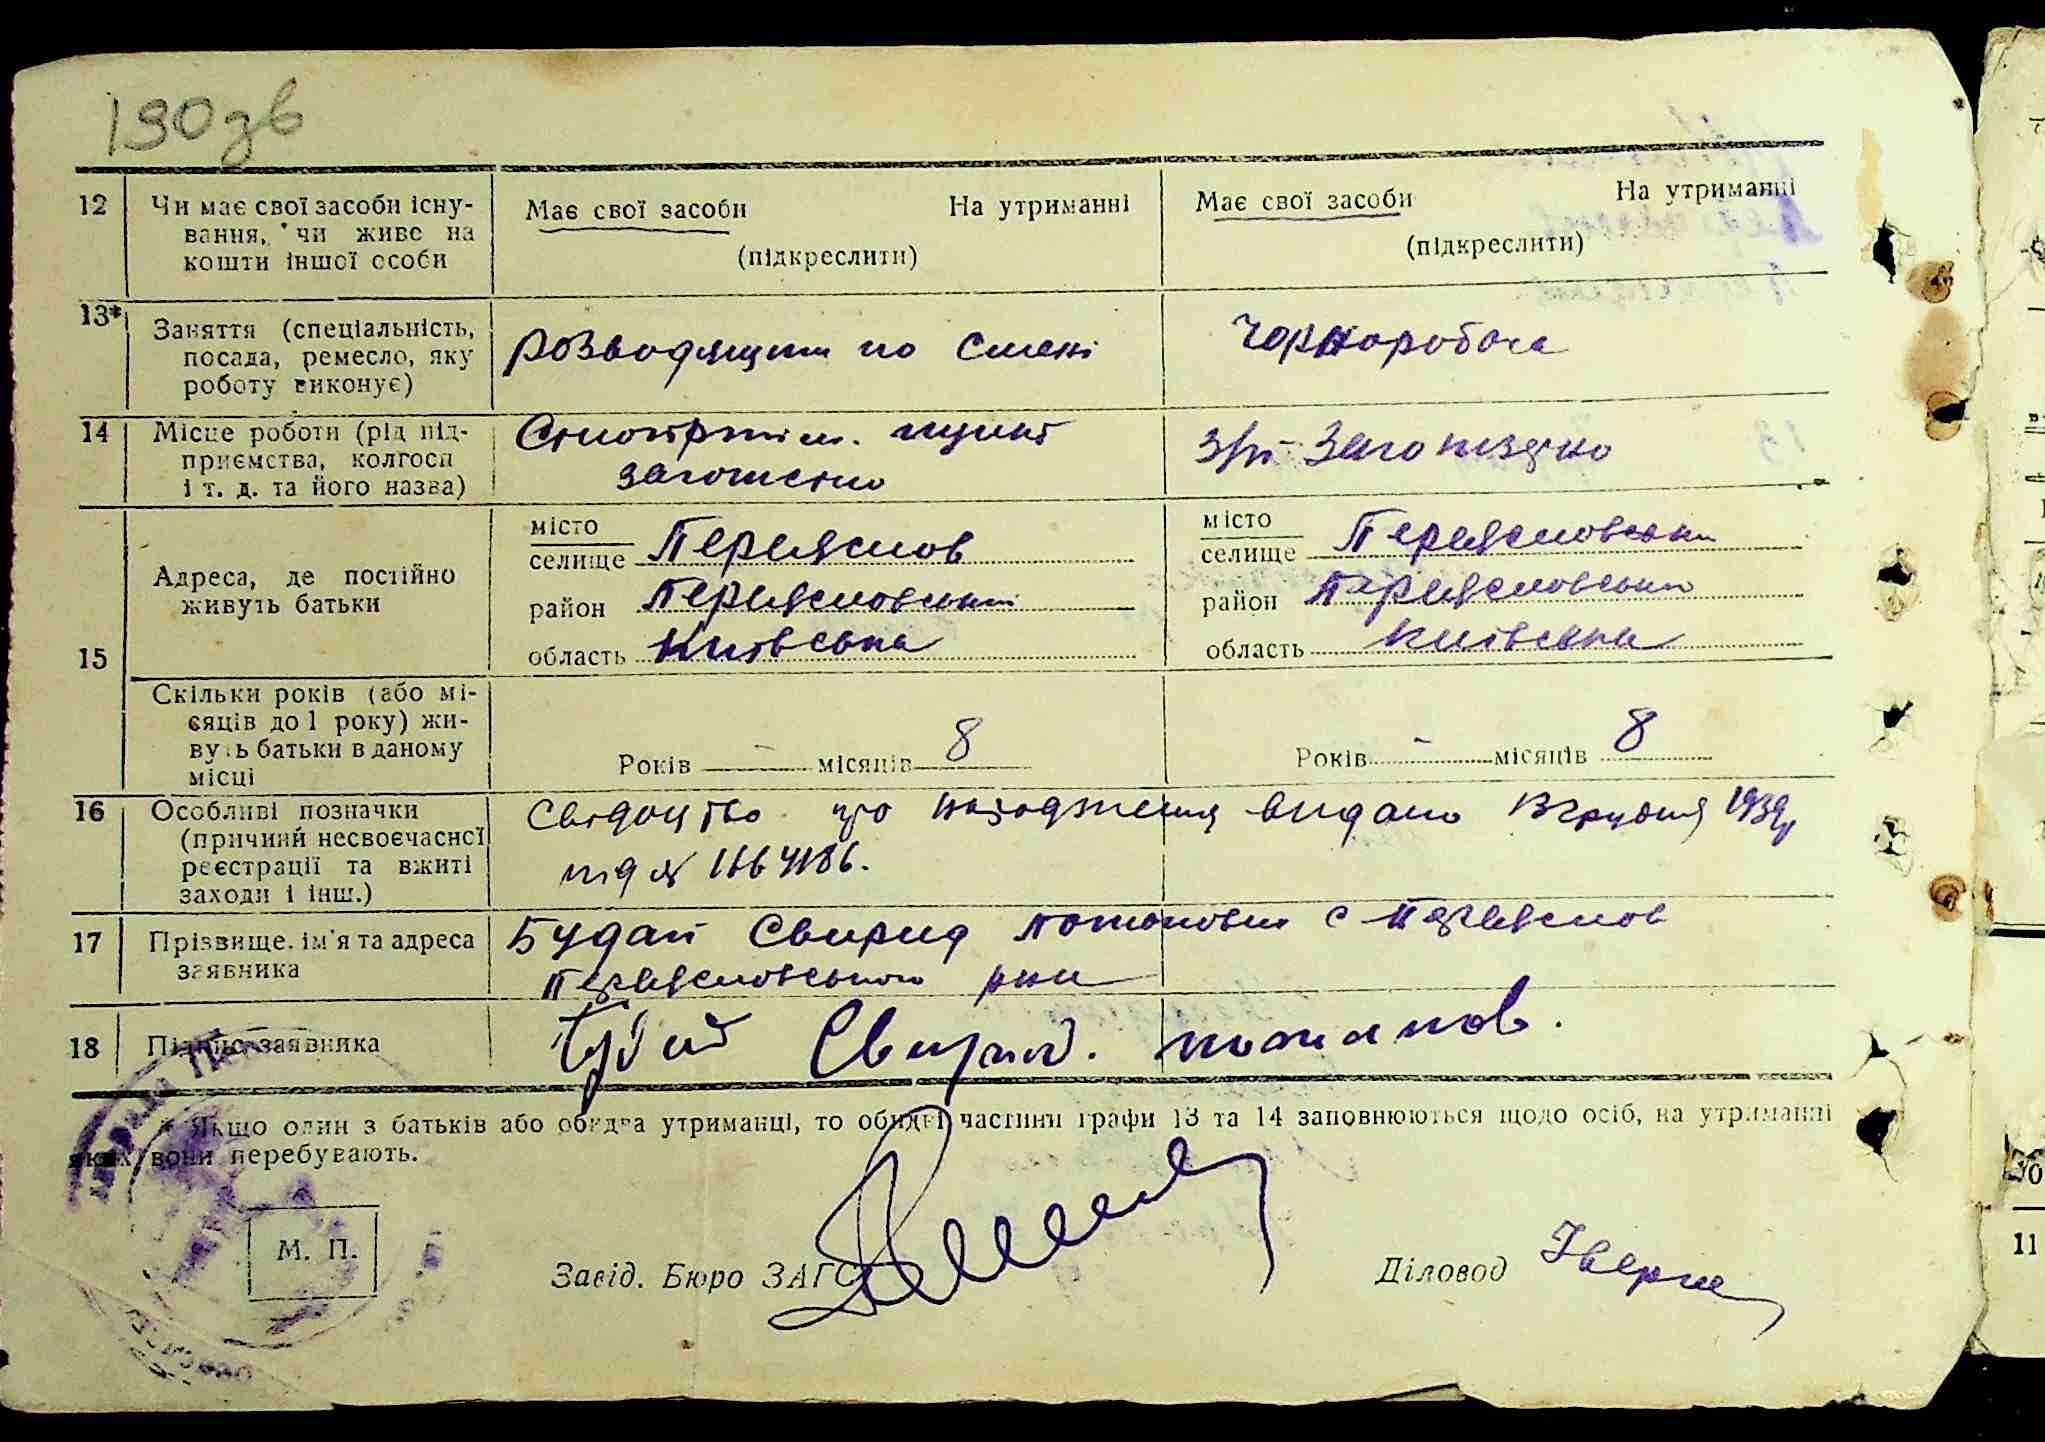 190 зв
12
Чи має свої засоби існу-
вання, чи живе на
кошти іншої особи
Має свої засоби На утриманні
(підкреслити)
Має свої засоби На утриманні
(підкреслити)
13*
Заняття (спеціальність,
посада, ремесло, яку
роботу виконує)
Розводящим по смені
Чорноробоча
14
Місце роботи (рід під-
приємства, колгосп
і т. д. та його назва)
пункт
Заготзерно
15
Адреса, де постійно
живуть батьки
місто
селище Переяслов
район Переясловський
область Київська
місто
селище Переясловський
район Переясловський
область Київська
Скільки років (або мі-
сяців до 1 року) жи-
вуть батьки в даному
місці
Років - місяців 8
Років - місяців 8
16
Особливі позначки
(причини несвоєчасної
реєстрації та вжиті
заходи і інш.)
Свідоцтво про народження видано 13 грудня 1939р
під №
17
Прізвище, ім'я та адреса
заявника
Будай Свирид Потапович с Переяслов
Переясловського р-ну
18
Підпис заявника
Будай Свирид. потапов.
* Якщо один з батьків або обидва утриманці, то обидві частини графи 13 та 14 заповнюються щодо осіб, на утриманні
яких вони перебувають.
М. П.
Завід. Бюро ЗАГС
Діловод